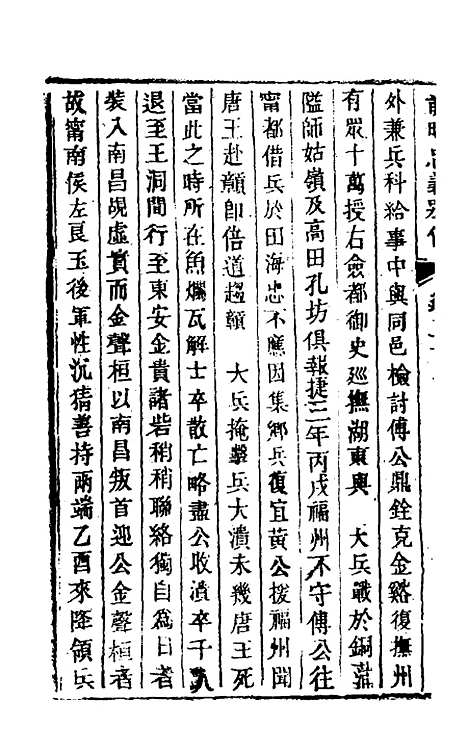 外兼兵科給事中與同邑檢討傅公鼎銓克金谿復撫州
有眾十萬授右僉都御史巡撫湖東與　大兵戰於銅蒜
監師姑嶺及高田孔坊俱報捷三年丙戌福州不守傅公往
甯都借兵於田海忠不應因集鄉兵復宜黃公援福州聞
唐王赴贑即倍道趨贑　大兵掩擊兵大潰未幾唐王死
當此之時所在魚爛瓦解士卒散亡略盡公收潰卒千人
退至王洞間行至東安金貴諸砦稍稍聯絡獨自為日者
裝入南昌覘虛實而金聲桓以南昌叛首迎公金聲桓者
故甯南侯左良玉後軍性沉猜善持兩端乙酉來降領兵